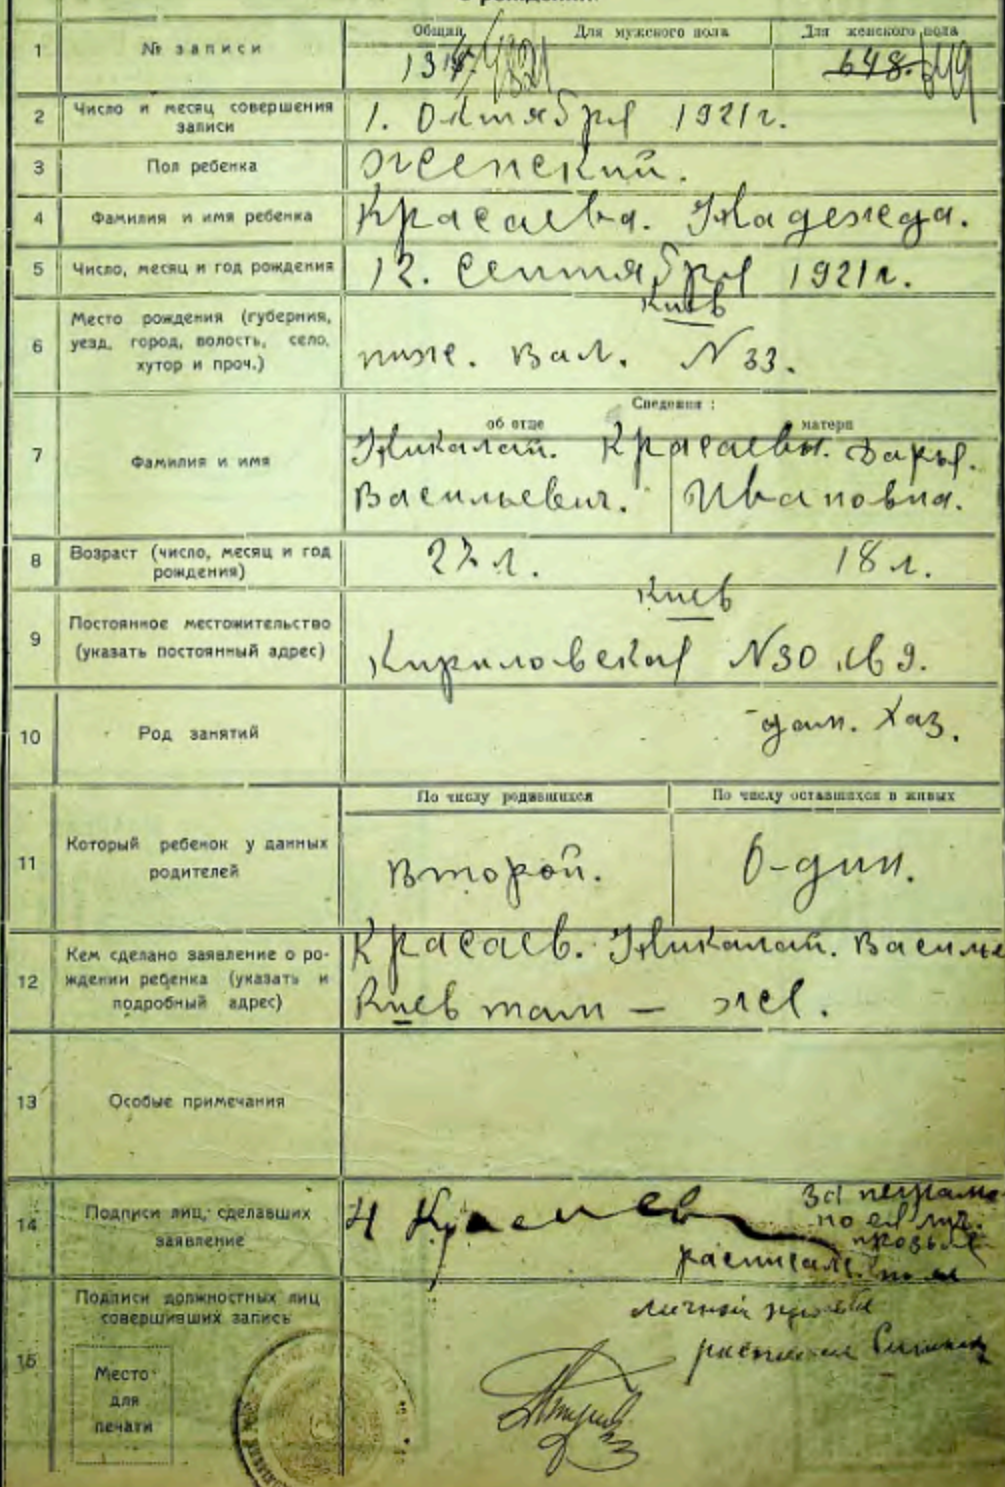 1
№ записи
Общий
Для мужского пола
Для женского пола
648. 649
2
Число и месяц совершения
записи
1. Октября 1921г.
3
Пол ребенка
Женский.
4
Фамилия и имя ребенка
Красаева. Надежда.
5
Число, месяц и год рождения
12. Сентября 1921г.
6
Место рождения (губерния,
уезд, город, волость, село,
хутор и проч.)
Киев
ниже. Вал. N 33.
7
Фамилия и имя
Сведения:
об отце
матери
Николай. Красаевы. Дарья.
Васильевич. Ивановна.
8
Возраст (число, месяц и год
рождения)
27 л.
18 л.
9
Постоянное местожительство
(указать постоянный адрес)
Киев
Кириловская N30 кв 9.
10
Род занятий
дом. Хаз.
11
Который ребенок у данных
родителей
По числу родившихся
По числу оставшихся в живых
Второй.
О-дин.
12
Кем сделано заявление о ро-
ждении ребенка (указать и
подробный адрес)
Красаев. Николай. Василье
Киев там — же.
13
Особые примечания
14
Подписи лиц, сделавших
заявление
Н Красаев
за неграмо
по ея
15
Подписи должностных лиц
совершивших запись
Место
для
печати
личной